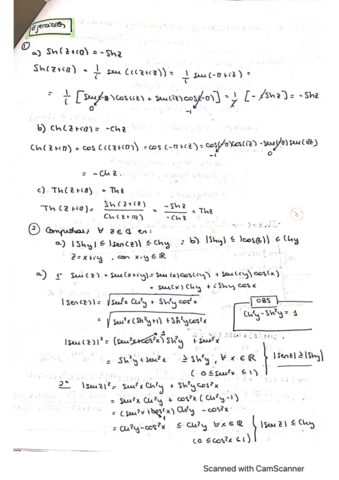 Ejercicios
①
a) Sh(z+iπ) = -Shz
Sh(z+iπ) = 1/i sen(i(z+iπ)) = 1/i sen(-π+iz) =
= 1/i [sen(-π)cos(iz) + sen(iz)cos(-π)] = 1/i [-iShz] = -Shz
0 -1
b) Ch(z+iπ) = -Chz
Ch(z+iπ) = cos(i(z+iπ)) = cos(-π+iz) = cos(-π)cos(iz) - sen(-π)sen(iz)
-1 0
= -Chz
c) Th(z+iπ) = Thz
Th(z+iπ) = Sh(z+iπ)/Ch(z+iπ) = -Shz/-Chz = Thz
② ∀ z∈ℂ en:
a) |Shy| ≤ |sen(z)| ≤ Chy ; b) |Shy| ≤ |cos(z)| ≤ Chy
z = x+iy, con x,y∈ℝ
a) 1º sen(z) = sen(x+iy) = sen(x)cos(iy) + sen(iy)cos(x)
= sen(x)Chy + iShy cosx
|sen(z)| = √sen²x Ch²y + Sh²y cos²x
OBS
= √sen²x(Sh²y+1) + Sh²y cos²x
Ch²y - Sh²y = 1
|sen(z)|² = (sen²x+cos²x) Sh²y + sen²x
= Sh²y + sen²x ≥ Sh²y, ∀ x∈ℝ } |senz| ≥ |Shy|
(0 ≤ sen²x ≤ 1)
2º |senz|² = sen²x Ch²y + Sh²y cos²x
= sen²x Ch²y + cos²x (Ch²y-1)
= (sen²x+cos²x) Ch²y - cos²x
= Ch²y - cos²x ≤ Ch²y ∀x∈ℝ } |senz| ≤ Chy
(0 ≤ cos²x ≤ 1)
Scanned with CamScanner